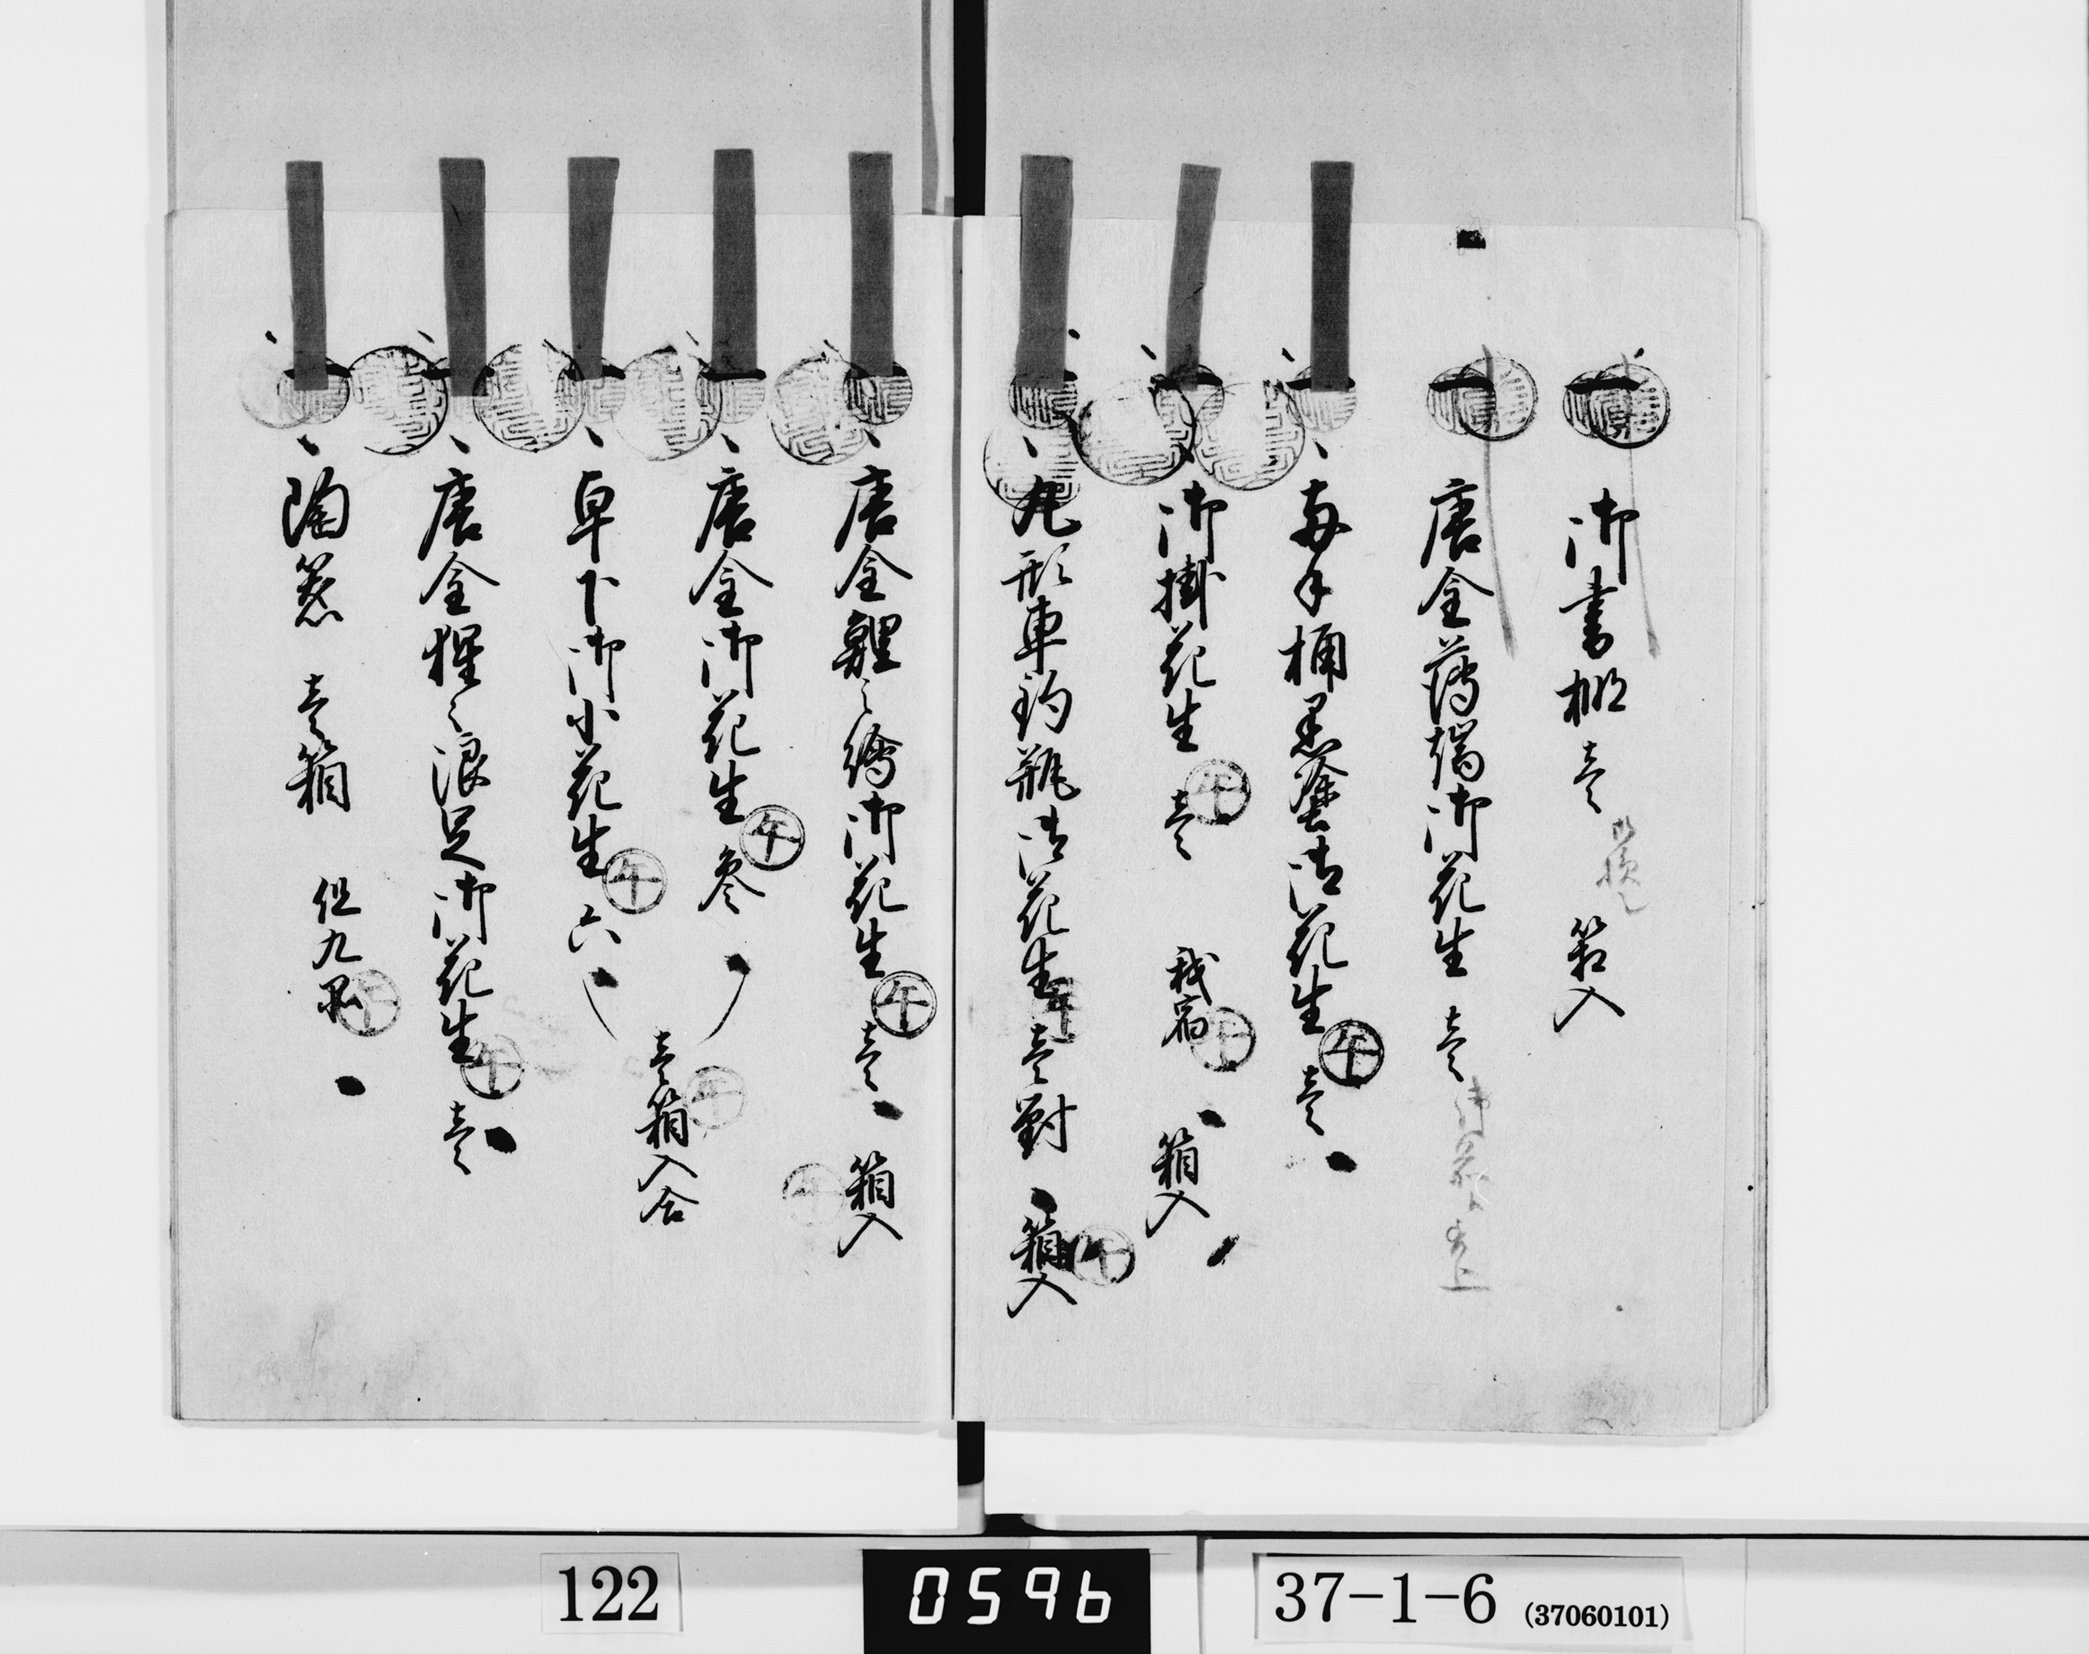 一 御書棚 壱 箱入
一 唐金 御花生 壱
一 手桶黒塗御花生 午 壱
一 御掛花生 午 壱 我宿 午 箱入
一 丸形車釣瓶御花生 午 壱對 箱入 午
一 唐金 御花生 午 壱 箱入 午
一 唐金御花生 午 参
一 卓下御小花生 午 六
壱箱入合 午
一 唐金猩々浪足御花生 午 壱
一 陶 壱箱 但九 午
122
0596
37-1-6 (37060101)